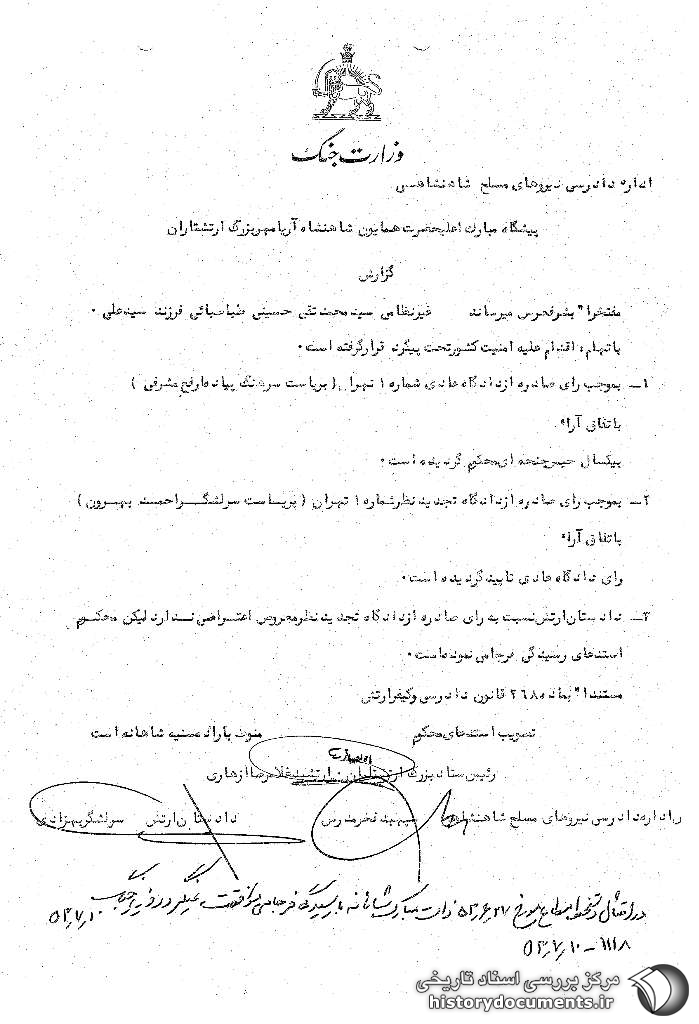 وزارت جنگ
اداره دادرسی نیروهای مسلح شاهنشاهی
پیشگاه مبارک اعلیحضرت همایون شاهنشاه آریامهر بزرگ ارتشتاران
گزارش
مفتخرا" بشرفعرض میرساند غیرنظامی سید محمد تقی حسینی طباطبائی فرزند سیدعلی .
باتهام : اقدام علیه امنیت کشور تحت پیگرد قرار گرفته است .
۱ــ بموجب رای صادره از دادگاه عادی شماره ۱ تهران ( بریاست سرهنگ پیاده رفیع مشرفی )
باتفاق آراء
بیکسال حبس جنحه ای محکوم گردیده است .
۲ــ بموجب رای صادره از دادگاه تجدید نظر شماره ۱ تهران ( بریاست سرلشگر احمد بهرون )
باتفاق آراء
رای دادگاه عادی تایید گردیده است .
۳ــ دادستان ارتش نسبت به رای صادره از دادگاه تجدید نظر معروض اعتراضی ندارد لیکن محکوم
استدعای رسیدگی فرجامی نموده است .
مستندا" بماده ۲۶۸ قانون دادرسی و کیفر ارتش
تصویب استدعای محکوم منوط باراده سنیه شاهانه است
رئیس ستاد بزرگ ارتشتاران ارتشبد غلامرضا ازهاری
اداره دادرسی نیروهای مسلح شاهنشاهی سپهبد فخر مدرس دادستان ارتش سرلشگر بهزادی
در امتثال دستخط مطاع مورخ ۵۳٫۶٫۲۷ ذات مبارک شاهانه با رسیدگی فرجامی موافقت
۵۳٫۷٫۱۰
۱۱۱۸ - ۵۳٫۷٫۱۰
مرکز بررسی اسناد تاریخی
historydocuments.ir